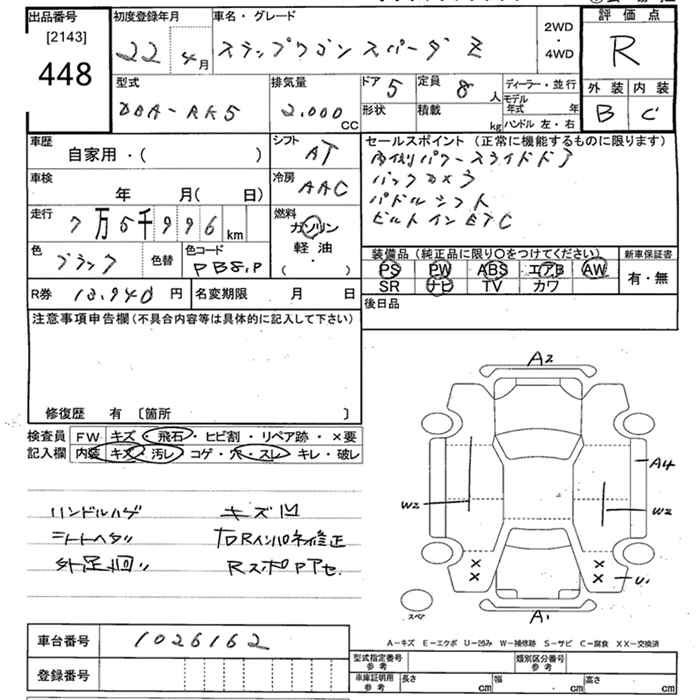 出品番号
[2143]
448
初度登録年月
22 4月
車名・グレード
ステップワゴン スパーダ Z
2WD
・
4WD
評価点
R
外装 内装
B C
型式
DBA-RK5
排気量
2,000
CC
ドア 5
形状
定員 8 人
積載 kg
ディーラー・並行
モデル年式 年
ハンドル 左・右
車歴
自家用・( )
シフト
AT
車検
年 月( 日)
冷房
AAC
走行
7万5千996km
燃料
ガソリン
軽油
( ・ )
色
ブラック
色替
色コード
PB81P
R券 13,940 円
名変期限 月 日
セールスポイント (正常に機能するものに限ります)
両側パワースライドドア
バックカメラ
パドルシフト
ビルトインETC
装備品(純正品に限り〇をつけてください)
PS PW ABS エアB AW
SR ナビ TV カワ
新車保証書
有・無
後日品
注意事項申告欄(不具合内容等は具体的に記入して下さい)
修復歴 有 〔箇所 〕
検査員記入欄
FW キズ・飛石・ヒビ割・リペア跡・×要
内装 キズ・汚レ・コゲ・穴・スレ・キレ・破レ
ハンドルハゲ キズ凹
シートヘタリ 右Rインパネ修正
外足廻サビ
A2
A4
W2
W2
U1
A1
スペア
A−キズ E−エクボ U−凹み W−補修跡 S−サビ C−腐食 XX−交換済
車台番号 1026162
登録番号
型式指定番号
参考
類別区分番号
参考
車庫証明用
参考
長さ cm 幅 cm 高さ cm